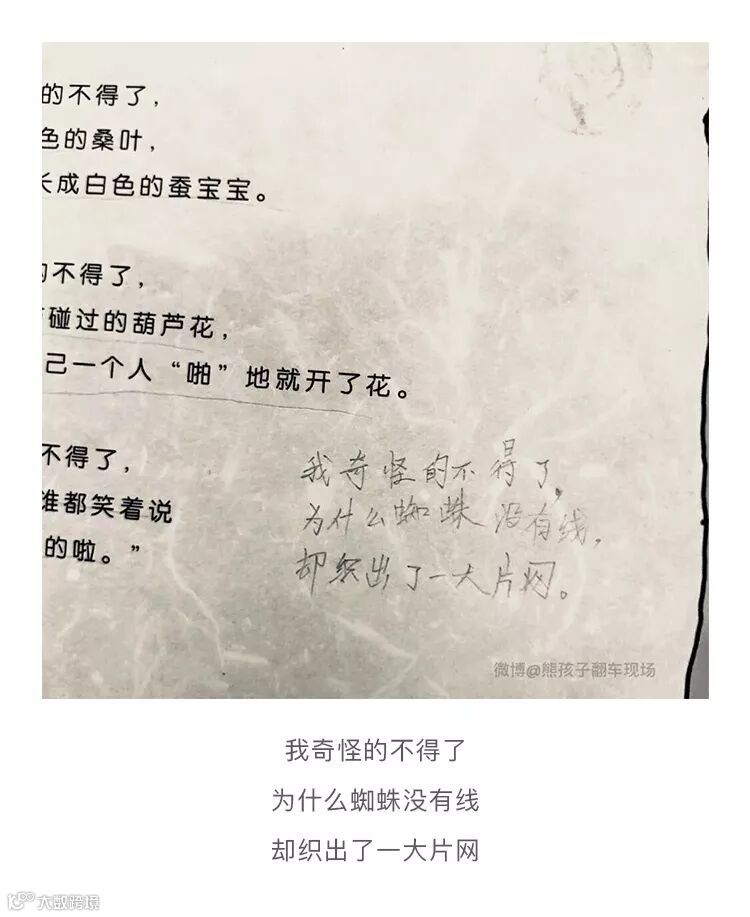 的不得了，
色的桑叶，
长成白色的蚕宝宝。
的不得了，
碰过的葫芦花，
己一个人“啪”地就开了花。
不得了，
谁都笑着说
的啦。”
我奇怪的不得了，
为什么蜘蛛没有线，
却织出了一大片网。
微博@熊孩子翻车现场
我奇怪的不得了
为什么蜘蛛没有线
却织出了一大片网
大数跨境